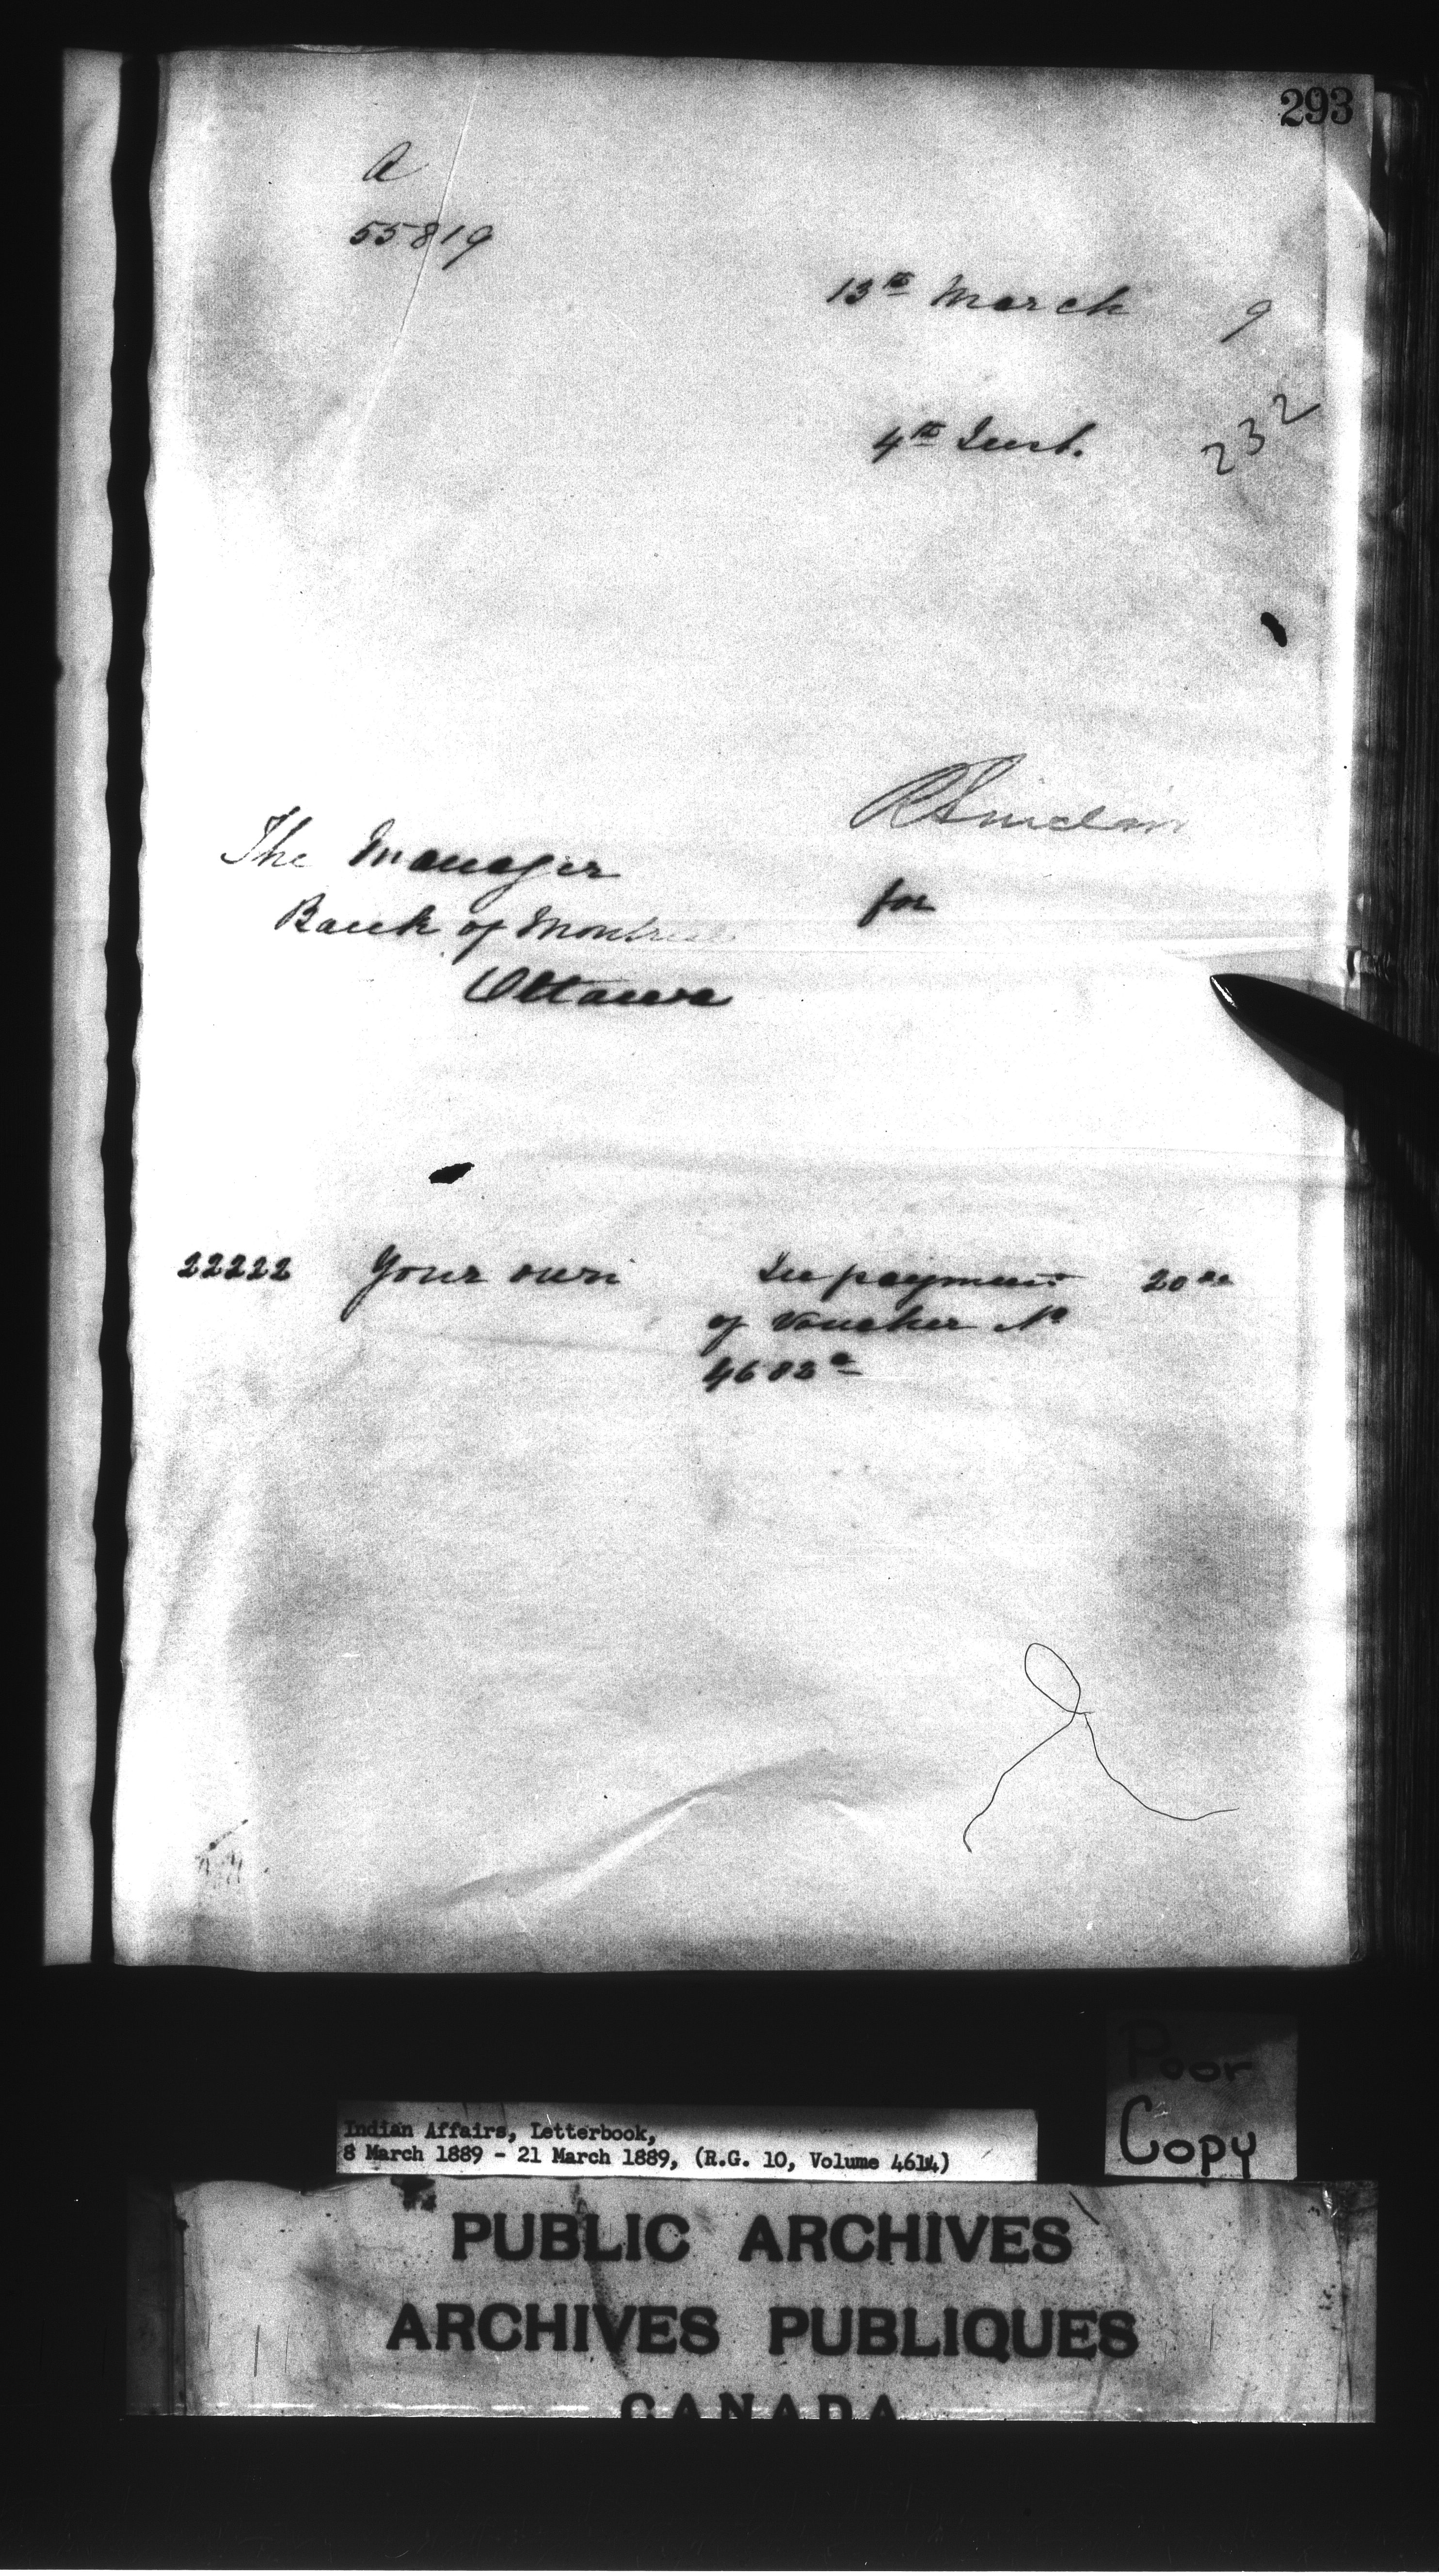 293
a
55819
13th March 9
4th Inst.
232
R Sinclair
The Manager
for
Bank of Montreal
Ottawa
22222 Your own In payment 20 00
of Voucher No
4602
Poor
Copy
Indian Affairs, Letterbook,
8 March 1889 - 21 March 1889, (R.G. 10, Volume 4614)
PUBLIC ARCHIVES
ARCHIVES PUBLIQUES
CANADA